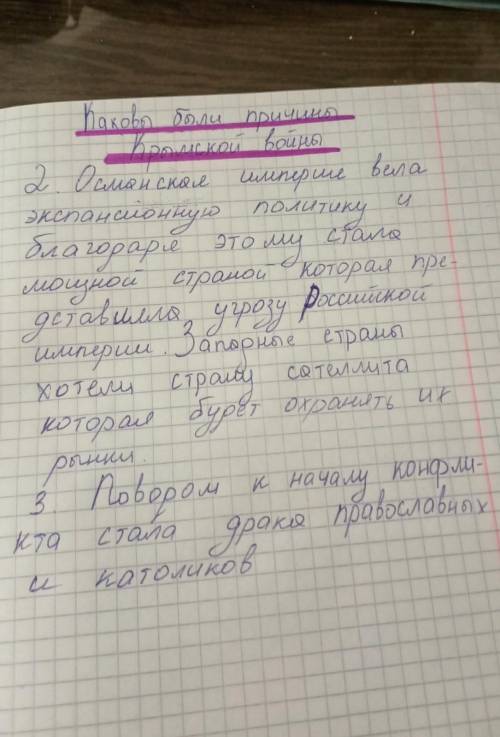 Каковы были причины
Крымской войны
2. Османская империе вела
экспансионную политику и
благодаря этому стала
мощной страной которая пре-
дставляла угрозу Российской
империи. Западные страны
хотели страну сателлита
которая будет охранять их
рынки.
3. Поводом к началу конфли-
кта стала драка православных
и католиков